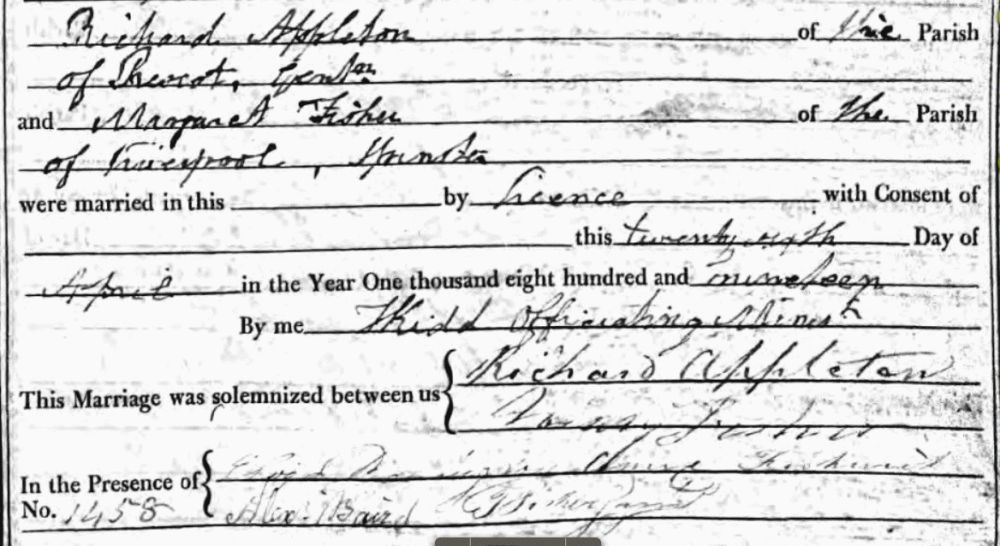 Richard Appleton of the Parish
of Prescot, Gentn
and Margaret Fisher of the Parish
of Liverpool, Spinster
were married in this by Licence with Consent of
this twenty sixth Day of
April in the Year One thousand eight hundred and nineteen
By me Kidd Officiating Ministr
Richard Appleton
This Marriage was solemnized between us
Fisher
In the Presence of
No. 1458 Alexr Baird